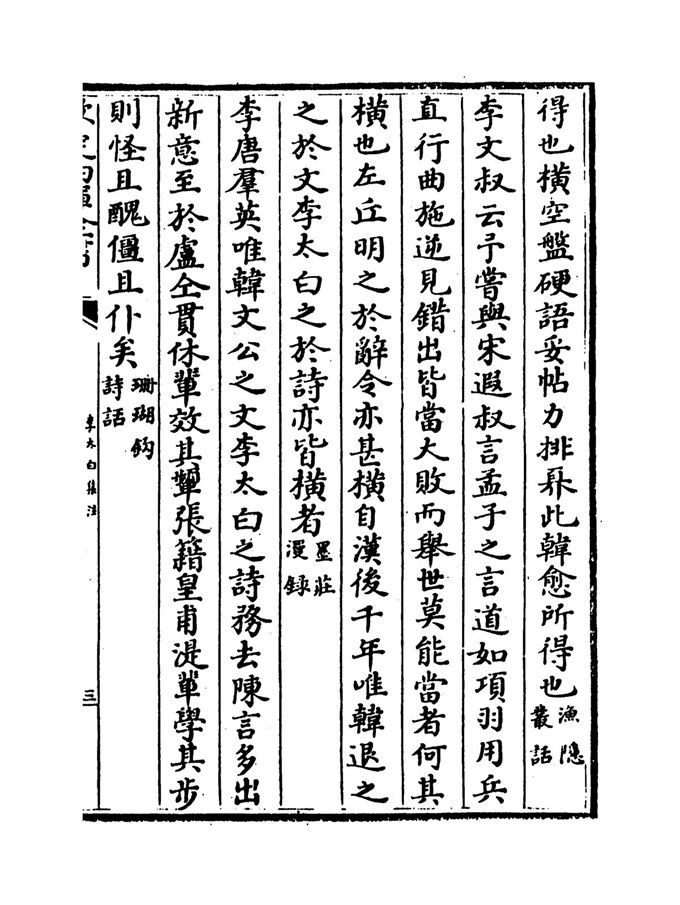 得也橫空盤硬語妥帖力排奡此韓愈所得也漁隱叢話
李文叔云予嘗與宋遐叔言孟子之言道如項羽用兵
直行曲施逆見錯出皆當大敗而舉世莫能當者何其
橫也左丘明之於辭令亦甚橫自漢後千年唯韓退之
之於文李太白之於詩亦皆橫者墨莊漫錄
李唐羣英唯韓文公之文李太白之詩務去陳言多出
新意至於盧仝貫休輩效其顰張籍皇甫湜輩學其步
則怪且醜僵且仆矣珊瑚鉤詩話
李太白集注
三